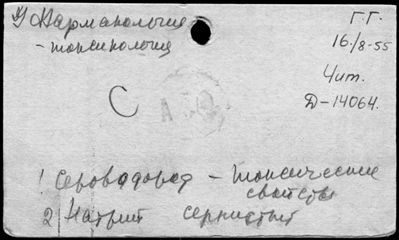 У Фармакология
- токсикология
Г.Г.
16./8-55
Чит.
Д-14064.
С
1 Сероводород - токсические
свойства
2 Натрий сернистый